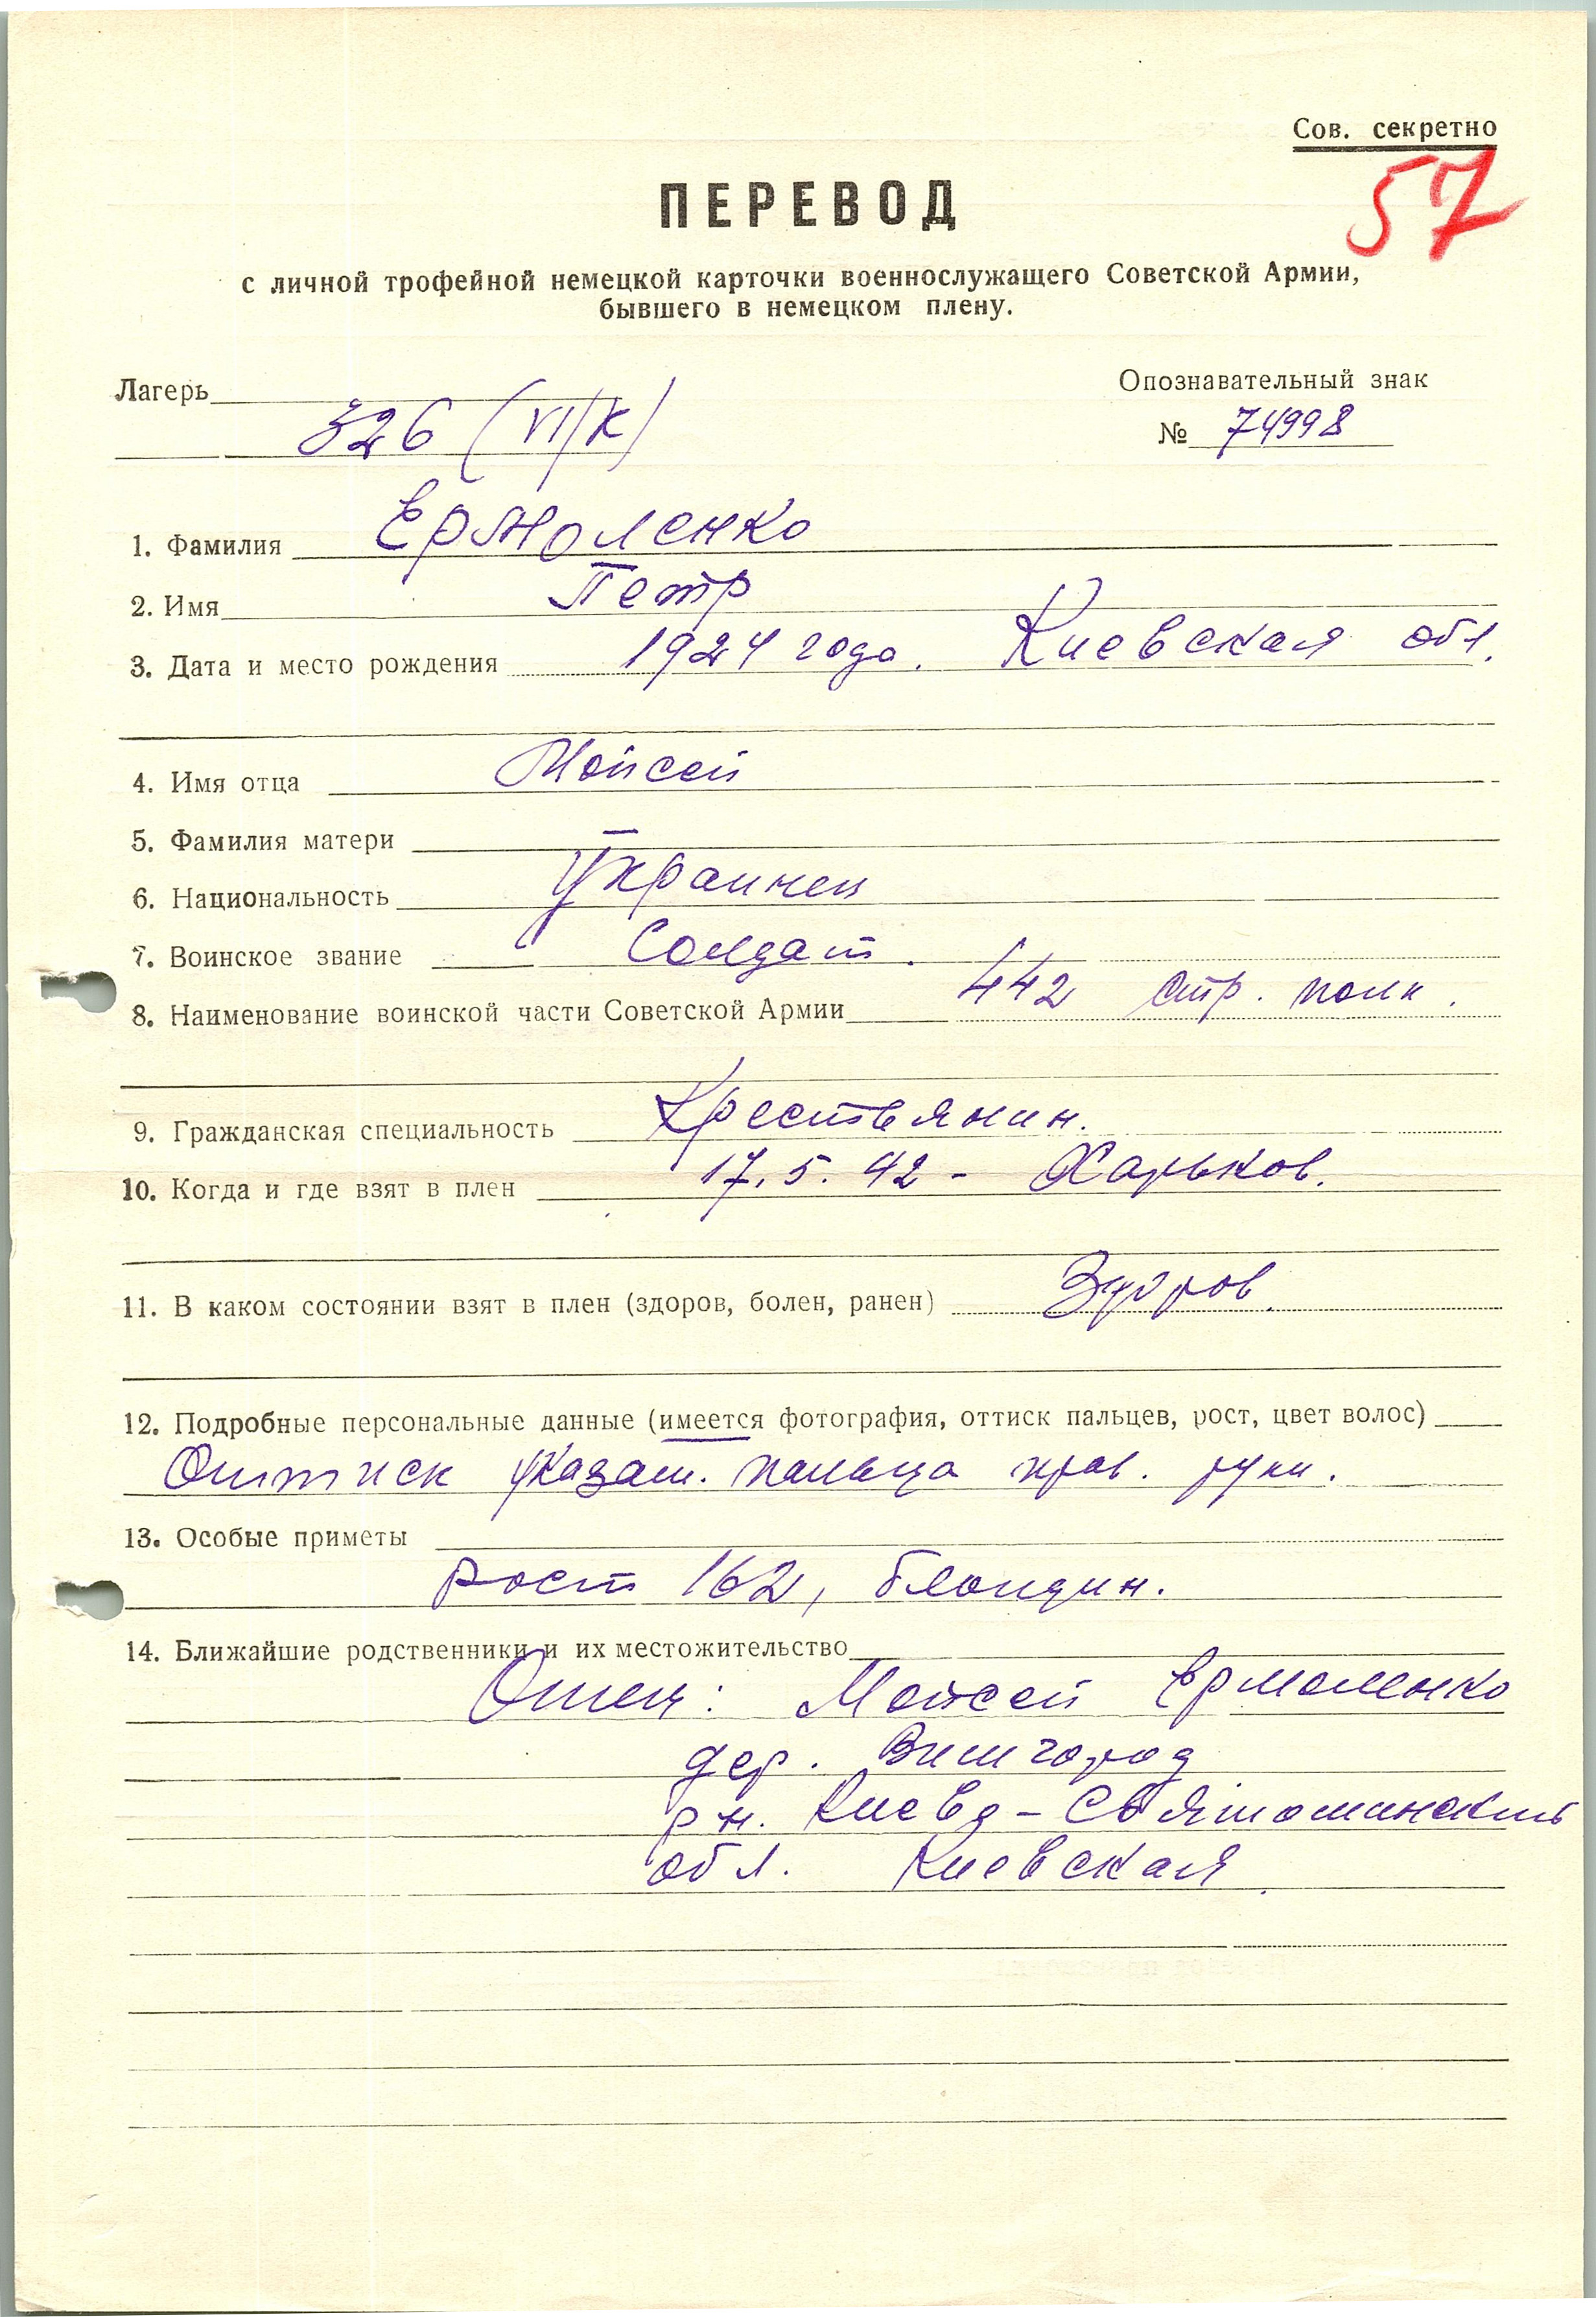 Сов. секретно
57
ПЕРЕВОД
с личной трофейной немецкой карточки военнослужащего Советской Армии,
бывшего в немецком плену.
Лагерь 326 (VI/К)
Опознавательный знак
№ 74998
1. Фамилия Ермоленко
2. Имя Петр
3. Дата и место рождения 1924 года. Киевская обл.
4. Имя отца Мойсей
5. Фамилия матери —
6. Национальность Украинец
7. Воинское звание Солдат.
8. Наименование воинской части Советской Армии 442 стр. полк.
9. Гражданская специальность Крестьянин.
10. Когда и где взят в плен 17.5.42 - Харьков.
11. В каком состоянии взят в плен (здоров, болен, ранен) Здоров.
12. Подробные персональные данные (имеется фотография, оттиск пальцев, рост, цвет волос)
Оттиск указат. пальца прав. руки.
13. Особые приметы
рост 162, блондин.
14. Ближайшие родственники и их местожительство
Отец: Мойсей Ермоленко
дер. Вишгород
рн. Киево-Святошинский
обл. Киевская.